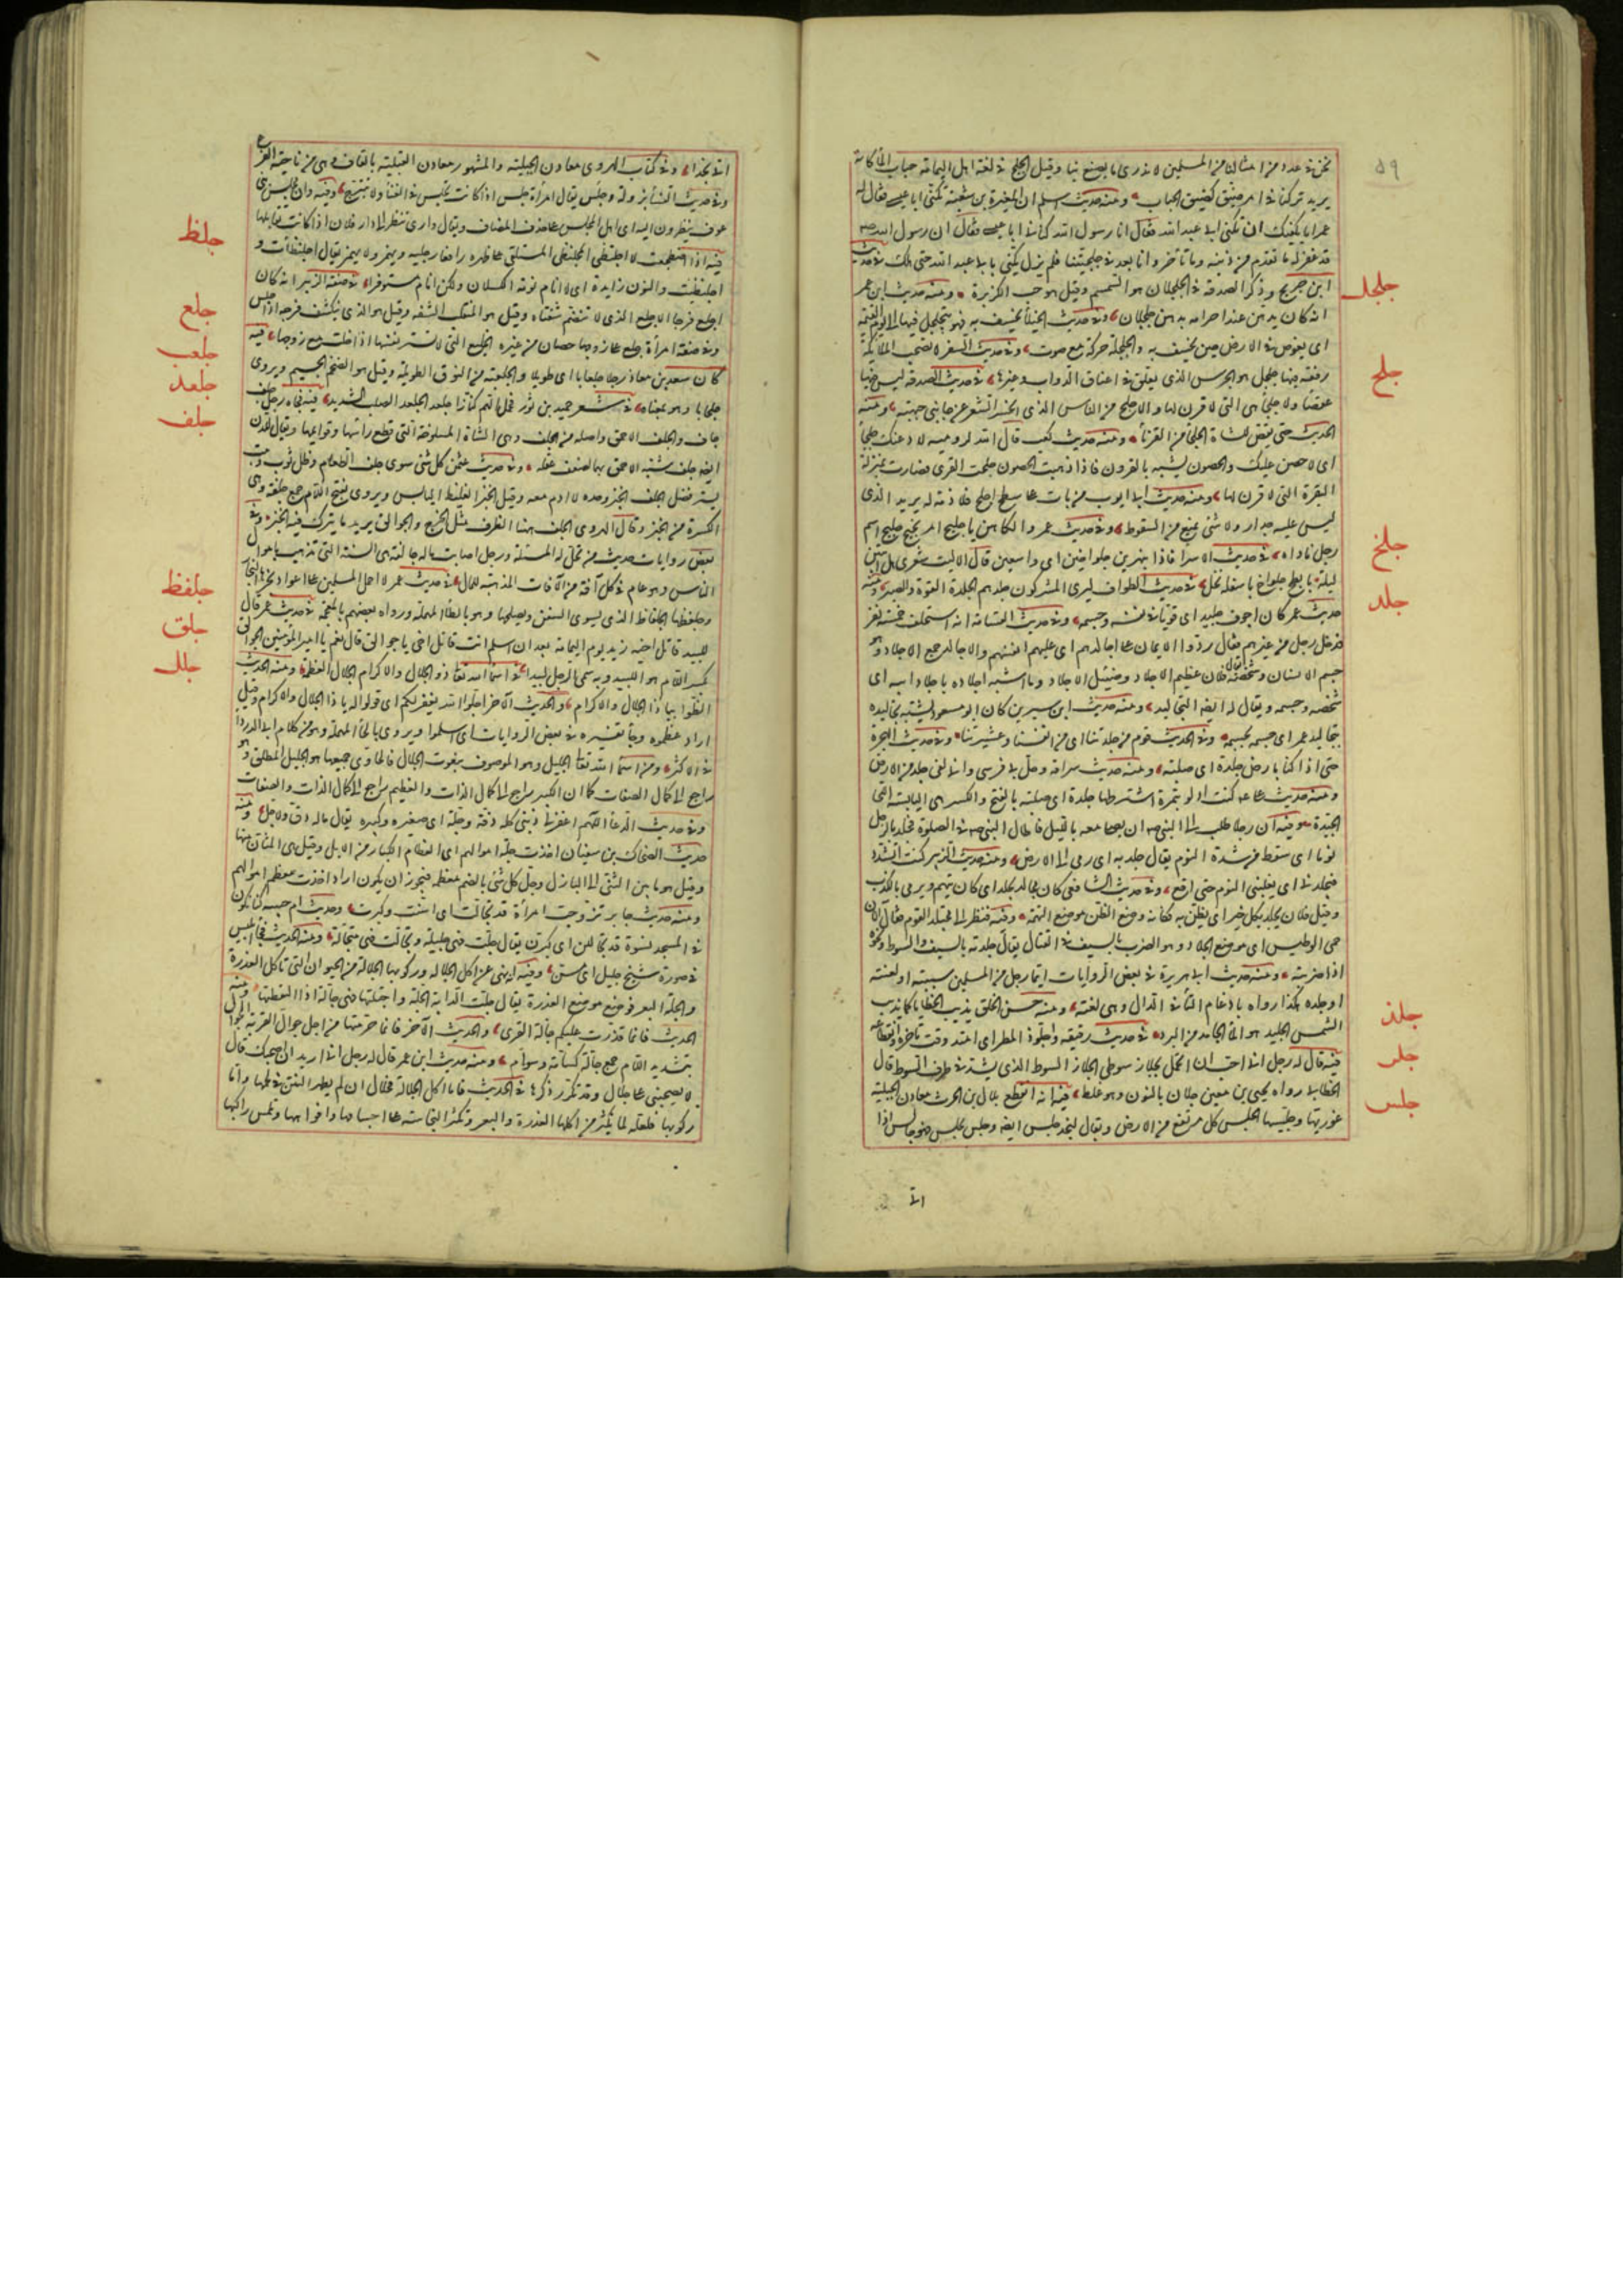 ٥٩
نحن فى عدد من امثالنا من المسلمين لا ندرى ما يصنع بنا وقيل الجلج فى لغة اهل اليمامة حباب الماء كانه
يريد تركنا فى امر ضيق كضيق الحباب ومنه حديث اسلم ان المغيرة بن شعبة تكنى ابا عيسى فقال له
عمر اما يكفيك ان تكنى بابى عبد الله فقال ان رسول الله كنانى ابا عيسى فقال ان رسول الله ص
قد غفر له ما تقدم من ذنبه وما تأخر وانا بعد فى جلجتنا فلم يزل يكنى بابى عبد الله حتى هلك فى حديث
جلجل
ابن جريج وذكر الصدقة فى الجلجلان هو السمسم وقيل هو حب الكزبرة ومنه حديث ابن عمر
انه كان يدهن عند احرامه بدهن جلجلان وفى حديث الخيلاء يخسف به فهو يتجلجل فيها الى يوم القيمة
اى يغوص فى الارض حين يخسف به والجلجلة حركة مع صوت وفى حديث السفر لا تصحب الملائكة
جلح
رفقة فيها جلجل هو الجرس الذى يعلق فى اعناق الدواب وغيرها فى حديث الصدقة ليس فيها
عقصاء ولا جلحاء هى التى لا قرن لها والاجلح من الناس الذى انحسر الشعر عن جانبى جبهته ومنه
الحديث حتى يقتص للشاة الجلحاء من القرناء ومنه حديث كعب قال الله لرومية لادعنك جلحاء
اى لا حصن عليك والحصون يشبه بالقرون فاذا ذهبت الحصون جلحت القرى فصارت بمنزلة
البقرة التى لا قرن لها ومنه حديث ابى ايوب من بات على سطح اجلح فلا ذمة له يريد الذى
ليس عليه جدار ولا شئ يمنع من السقوط وفى حديث عمر والكاهن يا جليح امر نجيح جليح اسم
جلخ
رجل ناداه فى حديث الاسراء فاذا بنهرين جلواخين اى واسعين قال الا ليت شعرى هل ابيتن
جلد
ليلة بابطح جلواخ باسفله نخل فى حديث الطواف ليرى المشركون جلدهم الجلدة القوة والصبر ومنه
حديث عمر كان اجوف جليدا اى قويا فى نفسه وجسمه وفى حديث القسامة انه استحلف خمسة نفر
فدخل رجل من غيرهم فقال ردوا الايمان على اجالدهم اى عليهم انفسهم والاجالد جمع الاجلاد وهو
جسم الانسان وشخصه يقال فلان عظيم الاجلاد وضئيل الاجلاد وما اشبه اجلاده باجلاد ابيه اى
شخصه وجسمه ويقال له ايضا التجاليد ومنه حديث ابن سيرين كان ابو مسعود يشبه تجاليده
بتجاليد عمر اى جسمه بجسمه وفى الحديث قوم من جلدتنا اى من انفسنا وعشيرتنا وفى حديث الهجرة
حتى اذا كنا بارض جلدة اى صلبة ومنه حديث سراقة وحل بى فرسى وانى لفى جلد من الارض
ومنه حديث على ع كنت ادلو بتمرة اشترطها جلدة اى صلبة بالفتح والكسر هى اليابسة اللحا
الجيدة وفيه ان رجلا طلب الى النبى ص ان يصلى معه بالليل فاطال النبى ص فى الصلوة فجلد بالرجل
نوما اى سقط من شدة النوم يقال جلد به اى رمى الى الارض ومنه حديث الزبير كنت اتشدد
فيجلد بى اى يغلبنى النوم حتى اقع وفى حديث الشافعى كان مجالد يجلد اى كان يتهم ويرمى بالكذب
وقيل فلان يجلد بكل خير اى يظن به فكانه وضع الظن موضع التهمة وفيه فنظر الى مجتلد القوم فقال الآن
حمى الوطيس اى موضع الجلاد وهو الضرب بالسيف فى القتال يقال جلدته بالسيف والسوط ونحوه
اذا ضربته ومنه حديث ابى هريرة فى بعض الروايات ايما رجل من المسلمين سببته او لعنته
او جلده هكذا رواه بادغام التاء فى الدال وهى لغته ومنه حسن الخلق يذيب الخطايا كما يذيب
جلذ
الشمس الجليد هو الماء الجامد من البرد فى حديث رقيقة واجلوذ المطر اى امتد وقت تأخره وانقطاعه
جلز
فيه قال له رجل انى احب ان اتجمل بجلاز سوطى الجلاز السوط الذى يشد فى طرف السوط قال
الخطابى رواه يحيى بن معين جلان بالنون وهو غلط فيه انه اقطع بلال بن الحرث معادن الجبلية
جلس
غوريها وجلسيها الجلس كل مرتفع من الارض ويقال لنجد جلس ايضا وجلس يجلس فهو جالس اذا
اتى
اتى نجدا وفى كتاب الهروى معادن الجبلية والمشهور معادن القبلية بالقاف وهى من ناحية الفرع
وفى حديث النساء بزولة وجلس يقال امراة جلس اذا كانت تجلس فى الفناء ولا تتبرج وفيه وان مجلس بنى
عوف ينظرون اليه اى اهل المجلس على حذف المضاف ويقال دارى تنظر الى دار فلان اذا كانت تقابلها
جلظ
فيه اذا اضطجعت لا اجلنظى المجلنظى المستلقى على ظهره رافعا رجليه ويهمز ولا يهمز يقال اجلنظأت و
اجلنظيت والنون زايدة اى لا انام نومة الكسلان ولكن انام مستوفزا فى صفة الزبير انه كان
جلع
اجلع فرجا الاجلع الذى لا تنضم شفتاه وقيل هو المنقلب الشفة وقيل هو الذى ينكشف فرجه اذا جلس
وفى صفة امراة جليع على زوجها حصان من غيره الجليع التى لا تستر نفسها اذا خلت مع زوجها فيه
جلعب
كان سعد بن معاذ رجلا جلعابا اى طويلا والجلعبة من النوق الطويلة وقيل هو الضخم الجسيم ويروى
جلعد
جلحابا وهو بمعناه فى شعر حميد بن ثور فحمل الهم كنازا جلعدا الجلعد الصلب الشديد فيه فجاءه رجل جلف
جلف
جاف والجلف الاحمق واصله من الجلف وهى الشاة المسلوخة التى قطع راسها وقوايمها ويقال للدن
ايضا جلف شبه الاحمق بهما لضعف عقله وفى حديث عثمن كل شئ سوى جلف الطعام وظل ثوب وبيت
يستر فضل الجلف الخبز وحده لا ادم معه وقيل الخبز الغليظ اليابس ويروى بفتح اللام جمع جلفة وهى
الكسرة من الخبز وقال الهروى الجلف ههنا الظرف مثل الخرج والجوالق يريد ما يترك فيه الخبز وفى
بعض روايات حديث من تحل له المسئلة ورجل اصابت ماله جالفة هى السنة التى تذهب باموال
الناس وهو عام فى كل آفة من الآفات المذهبة للمال فى حديث عمر لا احمل المسلمين على اعواد نجرها النجار
جلفظ
وجلفظها الجلفاظ الذى يسوى السفن ويصلحها وهو بالطاء المهملة ورواه بعضهم بالمعجمة فى حديث عمر قال
جلق
للبيد قاتل اخيه زيد يوم اليمامة بعد ان اسلم انت قاتل اخى يا جوالق قال نعم يا امير المؤمنين الجوالق
جلل
بكسر اللام هو اللبيد وبه سمى الرجل لبيدا فى اسماء الله تعالى ذو الجلال والاكرام الجلال العظمة ومنه الحديث
الظوا بياذا الجلال والاكرام والحديث الآخر اجلوا الله يغفر لكم اى قولوا له يا ذا الجلال والاكرام وقيل
اراد عظموه وجاء تفسيره فى بعض الروايات اى اسلموا ويروى بالحاء المهملة وهو من كلام ابى الدرداء
فى الاكثر ومن اسماء الله تعالى الجليل وهو الموصوف بنعوت الجلال فالحاوى جميعها هو الجليل المطلق وهو
راجع الى كمال الصفات كما ان الكبير راجع الى كمال الذات والعظيم راجع الى كمال الذات والصفات
وفى حديث الدعاء اللهم اغفر لى ذنبى كله دقه وجله اى صغيره وكبيره يقال ماله دق ولا جل ومنه
حديث الضحاك بن سفيان اخذت جلة اموالهم اى العظام الكبار من الابل وقيل هى المسان منها
وقيل هو ما بين الثنى الى البازل وجل كل شئ بالضم معظمه فيجوز ان يكون اراد اخذت معظم اموالهم
ومنه حديث جابر تزوجت امراة قد تجالت اى اسنت وكبرت وحديث ام حبيبة كنا نكون
فى المسجد نسوة قد تجاللن اى كبرن يقال جلت فهى جليلة وتجالت فهى متجالة ومنه الحديث فجاء ابليس
فى صورة شيخ جليل اى مسن وفيه انه نهى عن اكل الجلالة وركوبها الجلالة من الحيوان التى تاكل العذرة
والجلة البعر فوضع موضع العذرة يقال جلت الدابة الجلة واجتلتها فهى جالة اذا التقطتها ومنه
الحديث فانما قذرت عليكم جالة القرى والحديث الآخر فانما حرمتها من اجل جوال القرية الجوال
بتشديد اللام جمع جالة كسامة وسوام ومنه حديث ابن عمر قال له رجل انى اريد ان اصحبك قال
لا تصحبنى على جلال وقد تكرر ذكرها فى الحديث فاما اكل الجلالة فحلال ان لم يظهر النتن فى لحمها واما
ركوبها فلعله لما يكثر من اكلها العذرة والبعر وتكثر النجاسة على اجسامها وافواهها وتلمس راكبها